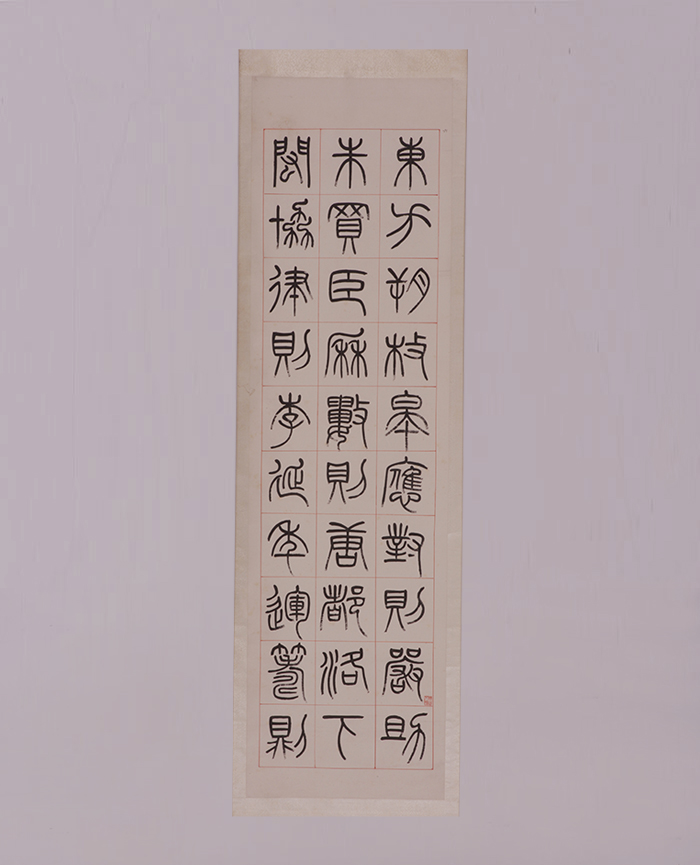 東方朔枚皋應對則嚴助
朱買臣厤數則唐都洛下
閎協律則李延年運籌則